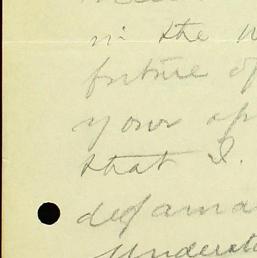 in the
future of
your
that I.
defama
Understa